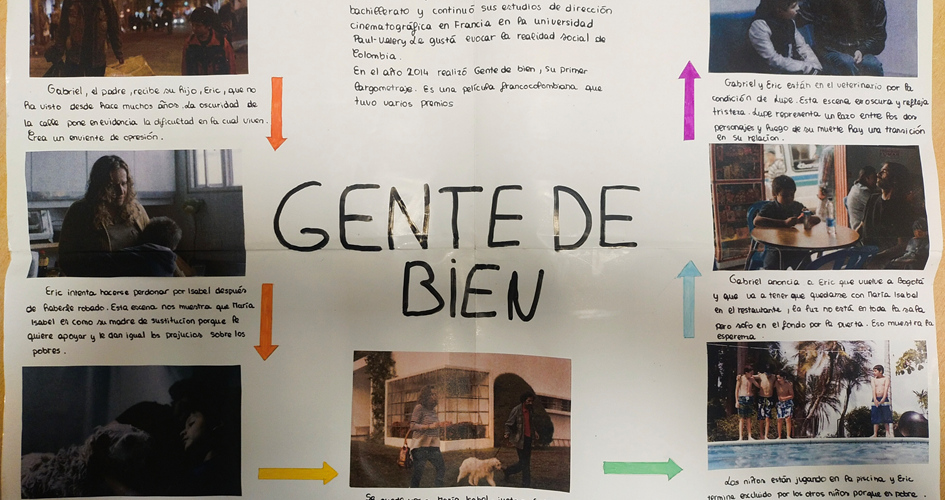 bachillerato y continuó sus estudios de dirección
cinematográfica en Francia en la universidad
Paul-Valery. Le gusta evocar la realidad social de
Colombia.
En el año 2014 realizó Gente de bien, su primer
largometraje. Es una película francocolombiana que
tuvo varios premios
Gabriel, el padre, recibe su hijo, Eric, que no
ha visto desde hace muchos años. La oscuridad de
la calle pone en evidencia la dificultad en la cual viven.
Crea un enviente de opresión.
GENTE DE
BIEN
Eric intenta hacerse perdonar por Isabel después
de haberle robado. Esta escena nos muestra que María
Isabel es como su madre de sustitucion porque le
quiere apoyar y le dan igual los prajucios sobre los
pobres.
Gabriel y Eric están en el veterinario por la
condición de Lupe. Esta escena es oscura y refleja
tristeza. Lupe representa un lazo entre los dos
personajes y luego de su muerte hay una transición
en su relacion.
Gabriel anoncia a Eric que vuelve a Bogotá
y que va a tener que quedarse con María Isabel
en el restaurante, la luz no está en toda la sala,
pero solo en el fondo por la puerta. Eso muestra la
esperema.
Los niños están jugando en la piscina y Eric
termina excluido por los otros niños porque es pobre.